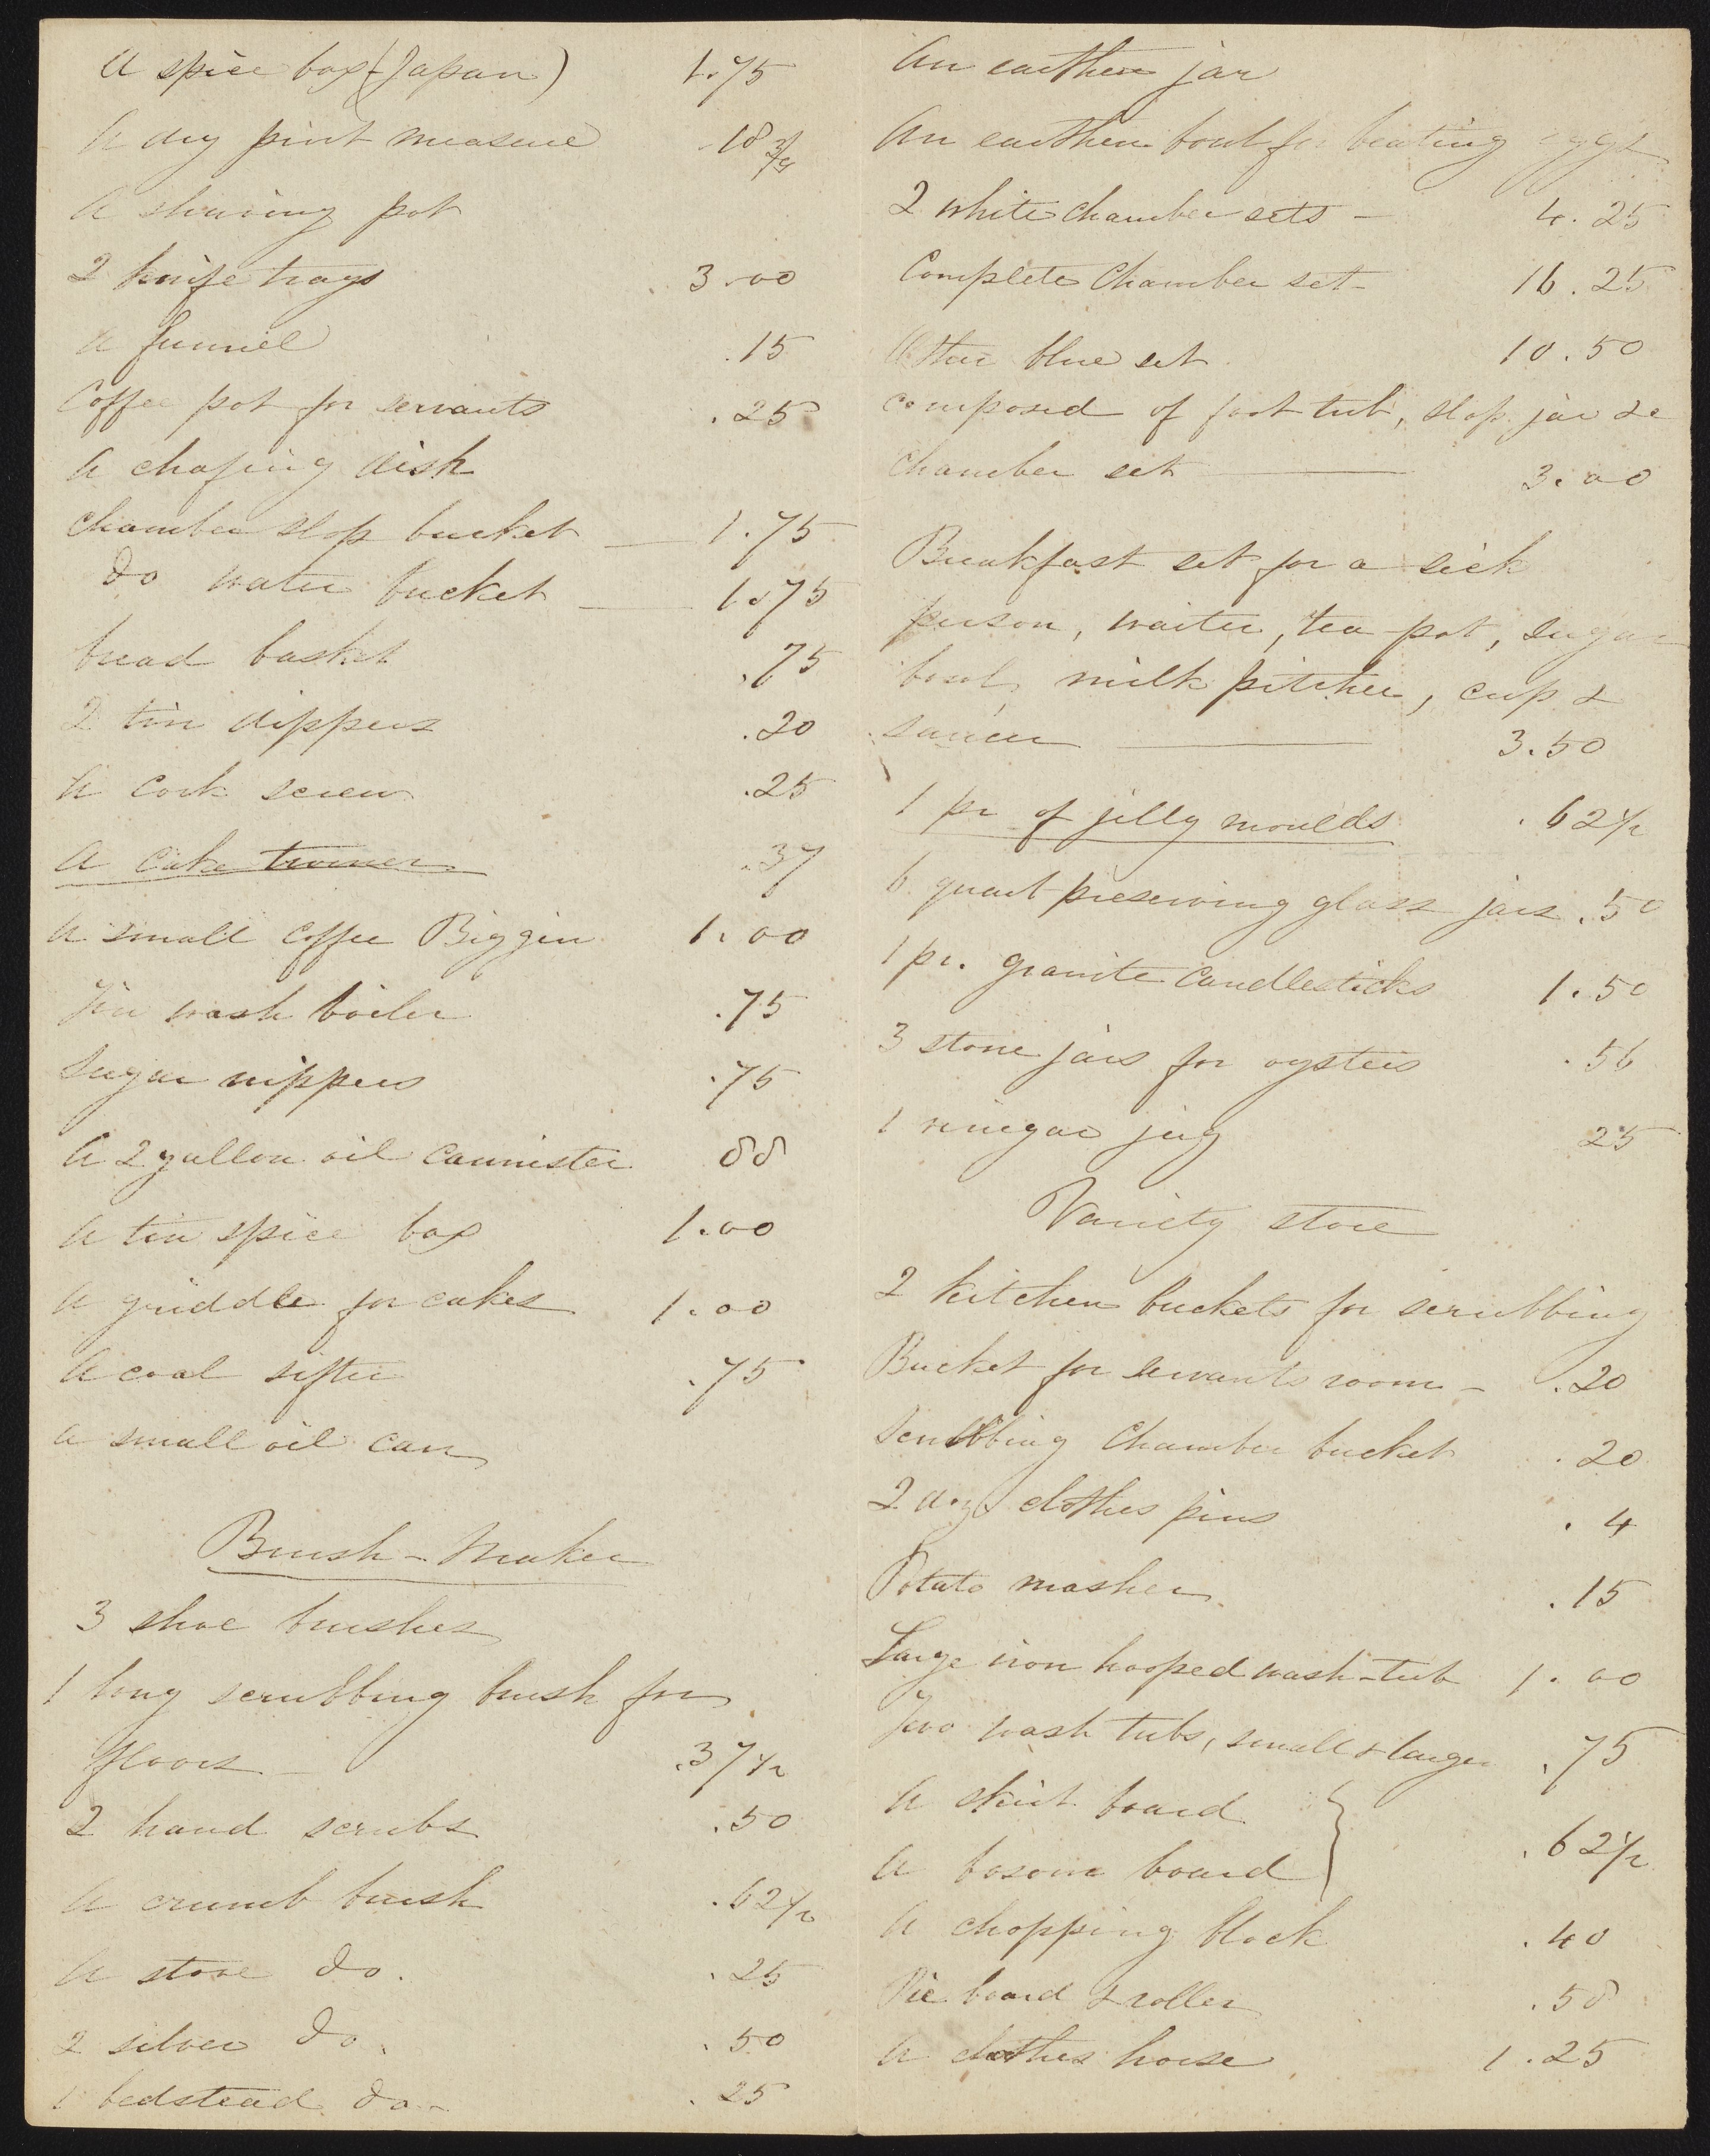 A spice box (Japan) 1.75
A dry pint measure .18 3/4
A shaving pot
2 knife trays 3.00
A funnel .15
Coffee pot for servants .25
A chafing dish
Chamber slop bucket — 1.75
Do water bucket — 1.75
bread basket .75
2 tin dippers .20
A cork screw .25
A cake turner .37
A small coffee Biggin 1.00
Tin wash boiler .75
Sugar nippers .75
A 2 gallon oil cannister 88
A tin spice box 1.00
A griddle for cakes 1.00
A coal sifter .75
A small oil can
Brush-Maker
3 shoe brushes
1 long scrubbing brush for
floors — .37 1/2
2 hand scrubs .50
A crumb brush .62 1/2
A stove do. .25
2 silver do. .50
1 bedstead do. - .25
An earthen jar
An earthen bowl for beating eggs
2 white chamber sets — 4.25
Complete Chamber set - 16.25
blue set 10.50
composed of foot tub, slop jar &c
Chamber set — 3.00
Breakfast set for a sick
person, waiter, tea pot, sugar
bowl, milk pitcher, cup &
saucer — 3.50
1 pr of jelly moulds .62 1/2
6 quart preserving glass jars .50
1 pr. granite candlesticks 1.50
3 stone jars for oysters .56
1 vinegar jug 25
Variety store
2 kitchen buckets for scrubbing
Bucket for servants room - .20
Scrubbing Chamber bucket .20
2 doz clothes pins .4
Potato masher .15
Large iron hooped wash-tub 1.00
Two wash tubs, small & large .75
A skirt board
A bosom board } .62 1/2
A chopping block .40
Pie board & roller .50
A clothes horse 1.25